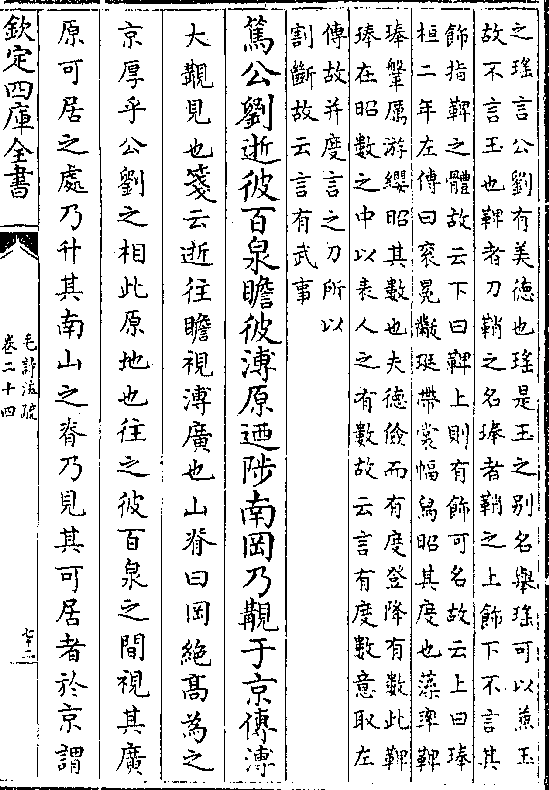 之瑤言公劉有美德也瑤是玉之别名舉瑤可以兼玉
故不言玉也鞞者刀鞘之名琫者鞘之上飾下不言其
飾指鞞之體故云下曰鞞上則有飾可名故云上曰琫
桓二年左傳曰衮冕黻珽帶裳幅舄昭其度也藻率鞞
琫鞶厲游纓昭其數也夫德儉而有度登降有數此鞞
琫在昭數之中以表人之有數故云言有度數意取左
傳故并度言之刀所以
割斷故云言有武事
篤公劉逝彼百泉瞻彼溥原迺陟南岡乃覯于京傳溥
大覯見也箋云逝往瞻視溥廣也山脊曰岡絶髙為之
京厚乎公劉之相此原地也往之彼百泉之間視其廣
原可居之處乃升其南山之脊乃見其可居者於京謂
欽定四庫全書
毛詩注疏
卷二十四